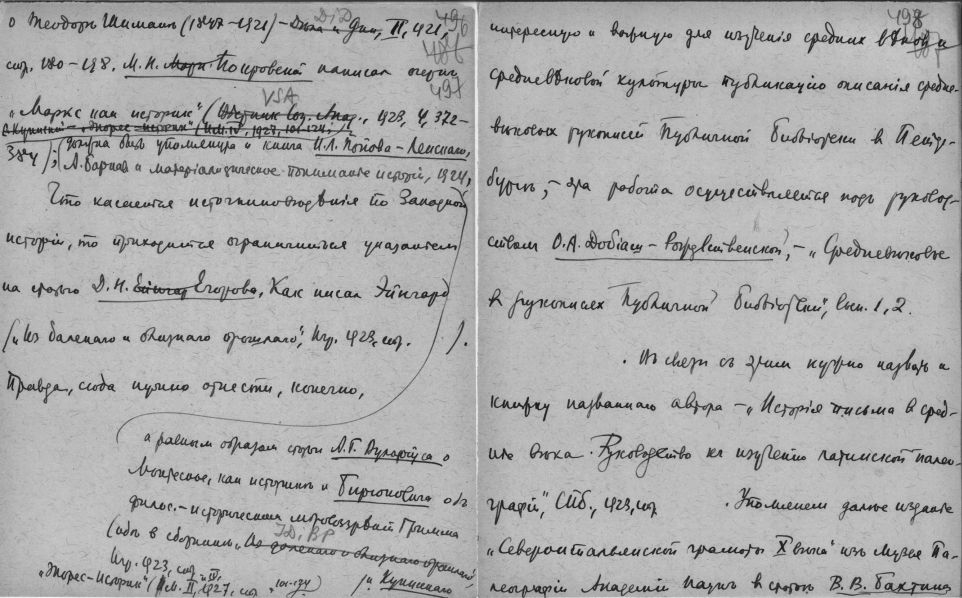 о Теодорѣ Шиманѣ (1847–1921) – Дѣла и Дни, II, 1921,
DiD
496
486
497
стр. 180–198. М. Н. Покровский написал очерк
VSA
„Маркс как историк“ (Вѣстник Соц. Акад., 1923, 4, 372–
384); (должна быть упомянута и книга И. Л. Попова-Ленскаго,
А. Барнав и матеріалистическое пониманіе исторіи, 1924,
Что касается источниковѣдѣнія по Западной
исторіи, то приходится ограничиться указанием
на статью Д. Н. Егорова, Как писал Эйнгард
(„Из далекаго и близкаго прошлаго“, Пгр. 1923, стр. ).
Правда, сюда нужно отнести, конечно,
а равным образом статьи А. Г. Вульфіуса о
Монтескье, как историкѣ и Бирюковича объ
филос.-исторических міровоззрѣній Гримма
JDiBP
(обѣ в сборникѣ „Из далекаго и близкаго прошлаго“,
Пгр. 1923, стр. и Купинскаго
„Жорес-историк“ (ИМ. II, 1927, стр. 101–124)
498
интересную и важную для изученія средних вѣков и
средневѣковой культуры публикацію описанія средне-
вѣковых рукописей Публичной библіотеки в Петер-
бургѣ, – эта работа осуществляется подъ руковод-
ством О. А. Добіаш-Рождественской, – „Средневѣковье
в рукописях Публичной Библіотеки“, вып. 1, 2.
Въ связи с этим нужно назвать и
книжку названнаго автора – „Исторія письма в сред-
ніе вѣка. Руководство къ изученію латинской палео-
графіи“, СПб., 1923, стр. Упомянем далѣе изданіе
„Сѣвероитальянской грамоты X вѣка“ изъ Музея Па-
леографіи Академіи Наукъ в статьѣ В. В. Бахтина